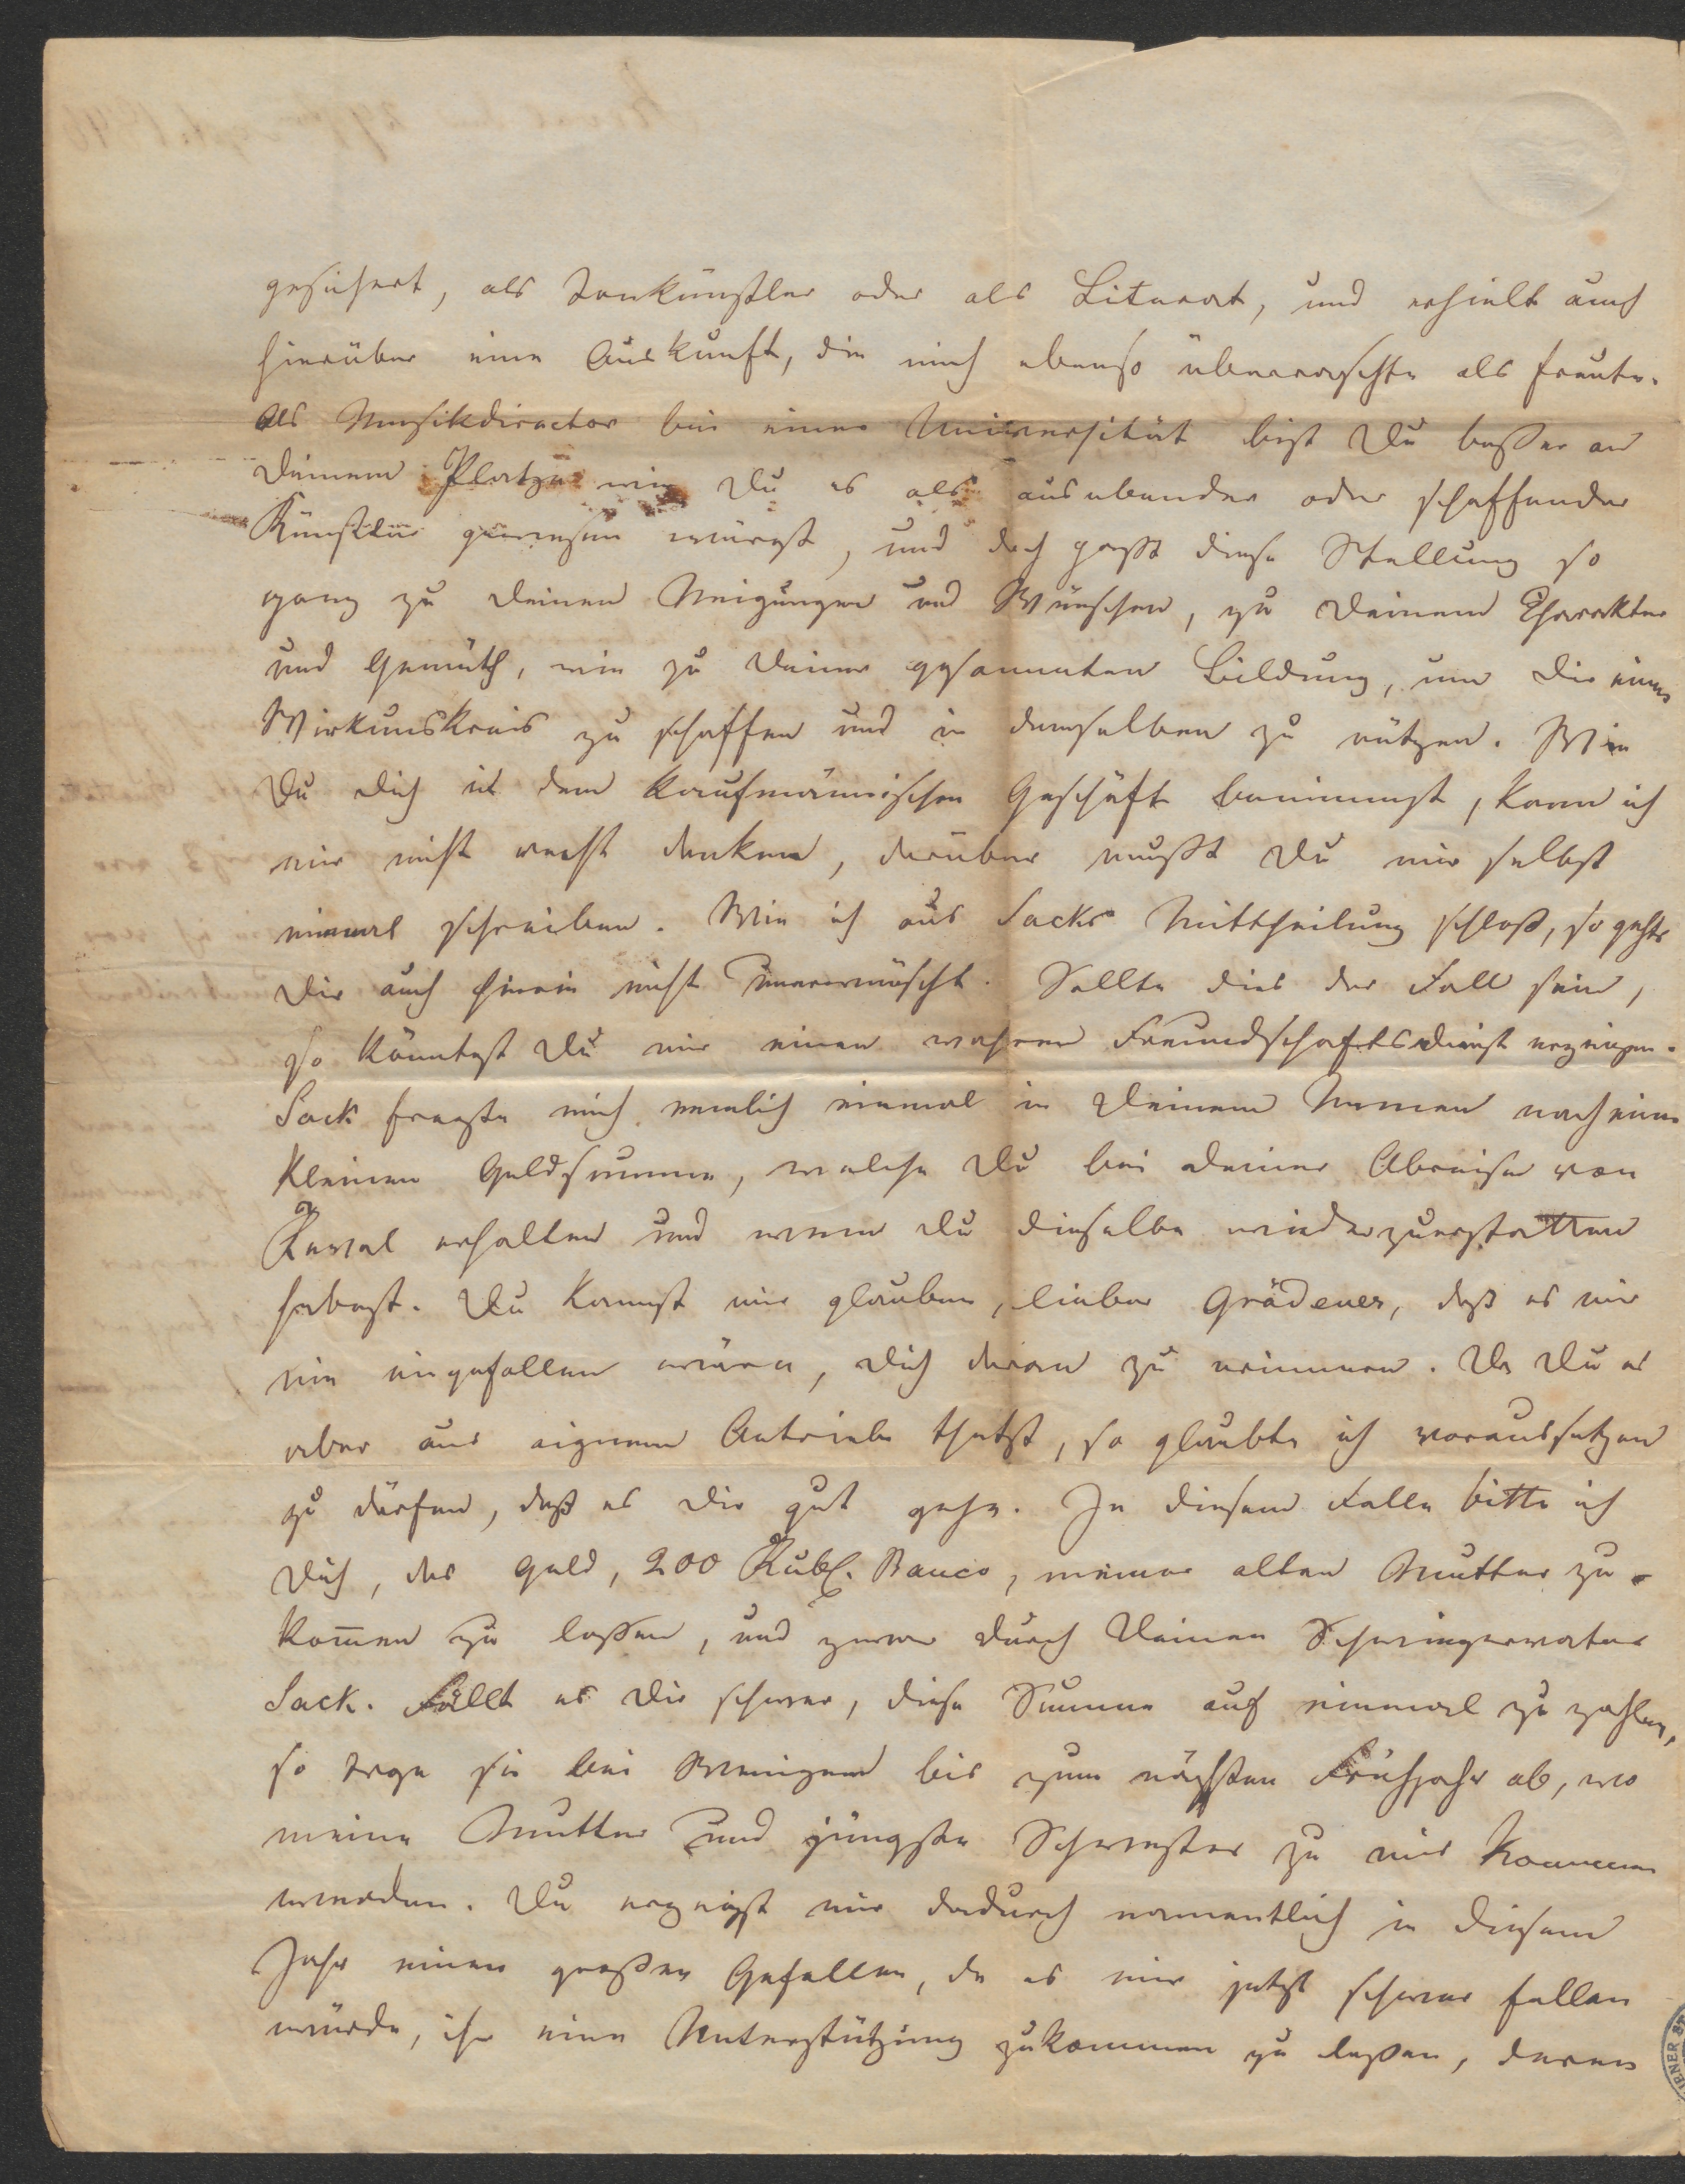 gesichert, als Tonkünstler oder als Literat, und erhielt auch
hierüber eine Auskunft, die mich ebenso überraschte als freute.
Als Musikdirector bei einer Universität bist Du beßer an
Deinem Platze wie Du es als ausübender oder schaffender
Künstler gewesen wärest, und doch paßt diese Stellung so
ganz zu Deinen Neigungen und Wünschen, zu Deinem Charakter
und Gemüth, wie zu Deiner gesammten Bildung, um Dir einen
Wirkunskreis zu schaffen und in demselben zu nützen. Wie
Du Dich in dem kaufmännischen Geschäft benimmst, kann ich
mir nicht recht denken, darüber mußt Du mir selbst
einmal schreiben. Wie ich aus Sacks Mittheilung schloß, so gehts
Dir auch hierin nicht unerwünscht. Sollte dies der Fall sein,
so könntest Du mir einen wahren Freundschaftsdienst erzeigen.
Sack fragte mich nemlich einmal in Deinem Namen nach einer
kleinen Geldsumme, welche Du bei Deiner Abreise von
Reval erhalten und wem Du dieselbe wiederzuerstatten
habest. Du kannst mir glauben, lieber Grädener, daß es mir
nie eingefallen wäre, Dich daran zu erinnern. Da Du es
aber aus eignem Antriebe thatst, so glaubte ich voraussetzen
zu dürfen, daß es Dir gut gehe. In diesem Falle bitte ich
Dich, das Geld, 200 Rubl. Banco, meiner alten Mutter zu-
kom̄en zu laßen, und zwar durch Deinen Schwiegervater
Sack. Fällt es Dir schwer, diese Summe auf einmal zu zahlen,
so trage sie bei Wenigem bis zum nächsten Frühjahr ab, wo
meine Mutter und jüngste Schwester zu mir kommen
werden. Du erzeigst mir dadurch namentlich in diesem
Jahr einen großen Gefallen, da es mir jetzt schwer fallen
würde, ihr eine Unterstützung zukommen zu laßen, deren